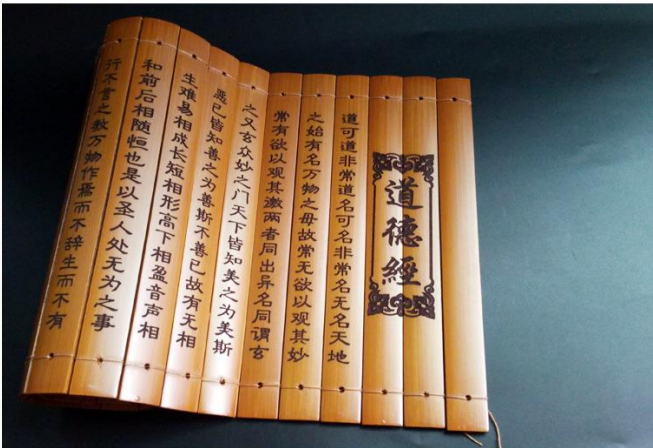 道德經
道可道非常道名可名非常名无名天地
之始有名万物之母故常无欲以观其妙
常有欲以观其邀两者同出异名同谓玄
之又玄众妙之门天下皆知美之为美斯
恶已皆知善之为善斯不善已故有无相
生难易相成长短相形高下相盈音声相
和前后相随恒也是以圣人处无为之事
行不言之教万物作焉而不辞生而不有